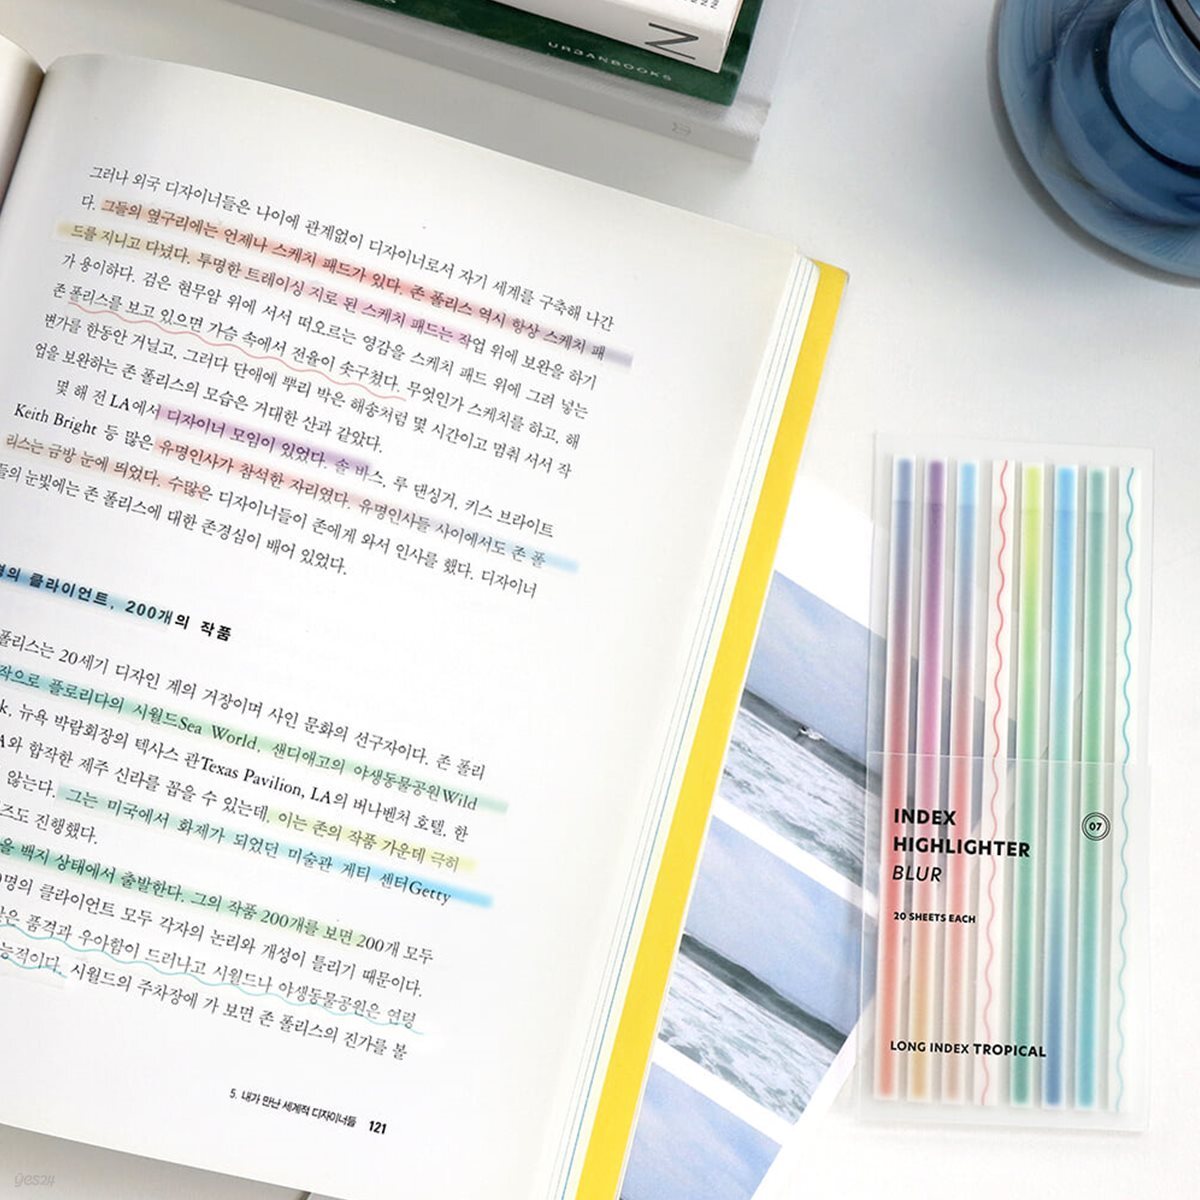 URBANBOOKS
그러나 외국 디자이너들은 나이에 관계없이 디자이너로서 자기 세계를 구축해 나간
다. 그들의 옆구리에는 언제나 스케치 패드가 있다. 존 폴리스 역시 항상 스케치 패
드를 지니고 다녔다. 투명한 트레이싱 지로 된 스케치 패드는 작업 위에 보완을 하기
가 용이하다. 검은 현무암 위에 서서 떠오르는 영감을 스케치 패드 위에 그려 넣는
존 폴리스를 보고 있으면 가슴 속에서 전율이 솟구쳤다. 무엇인가 스케치를 하고, 해
변가를 한동안 거닐고, 그러다 단애에 뿌리 박은 해송처럼 몇 시간이고 멈춰 서서 작
업을 보완하는 존 폴리스의 모습은 거대한 산과 같았다.
몇 해 전 LA에서 디자이너 모임이 있었다. 솔 바스, 루 댄싱거, 키스 브라이트
Keith Bright 등 많은 유명인사가 참석한 자리였다. 유명인사들 사이에서도 존 폴
리스는 금방 눈에 띄었다. 수많은 디자이너들이 존에게 와서 인사를 했다. 디자이너
들의 눈빛에는 존 폴리스에 대한 존경심이 배어 있었다.
명의 클라이언트, 200개의 작품
폴리스는 20세기 디자인 계의 거장이며 사인 문화의 선구자이다. 존 폴리
작으로 플로리다의 시월드Sea World, 샌디애고의 야생동물공원Wild
k, 뉴욕 박람회장의 텍사스 관Texas Pavilion, LA의 버나벤처 호텔, 한
A와 합작한 제주 신라를 꼽을 수 있는데, 이는 존의 작품 가운데 극히
않는다. 그는 미국에서 화제가 되었던 미술관 게티 센터Getty
즈도 진행했다.
을 백지 상태에서 출발한다. 그의 작품 200개를 보면 200개 모두
0명의 클라이언트 모두 각자의 논리와 개성이 틀리기 때문이다.
같은 품격과 우아함이 드러나고 시월드나 야생동물공원은 연령
능적이다. 시월드의 주차장에 가 보면 존 폴리스의 진가를 볼
5. 내가 만난 세계적 디자이너들 121
INDEX
HIGHLIGHTER
BLUR
07
20 SHEETS EACH
LONG INDEX TROPICAL
yes24